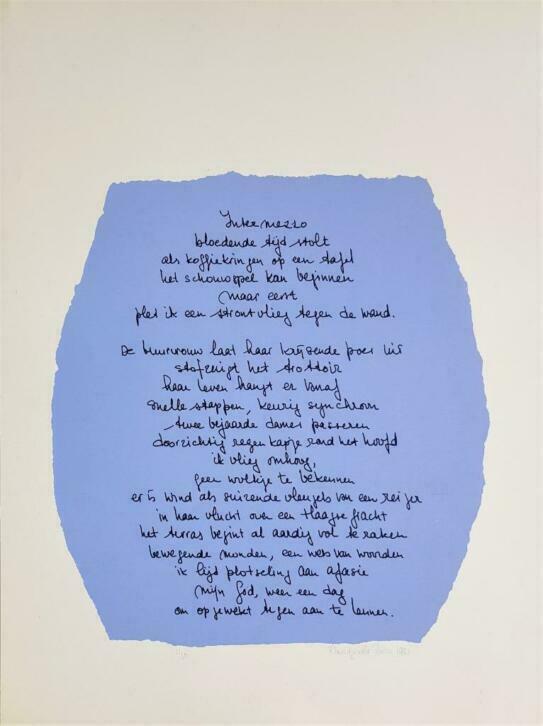 Intermezzo
bloedende tijd stolt
als koffiekringen op een tafel
het schouwspel kan beginnen
maar eerst
plet ik een strontvlieg tegen de wand.
De buurvrouw laat haar krijsende poes uit
stofzuigt het trottoir
haar leven hangt er vanaf
snelle stappen, keurig synchroon
twee bejaarde dames passeren
doorzichtig regenkapje rond het hoofd
ik vlieg omhoog,
geen wolkje te bekennen
er is wind als suizende vleugels van een reiger
in haar vlucht over een Haagse gracht
het terras begint al aardig vol te raken
bewegende monden, een web van woorden
ik lijd plotseling aan afasie
mijn God, weer een dag
om opgewekt tegen aan te leunen.